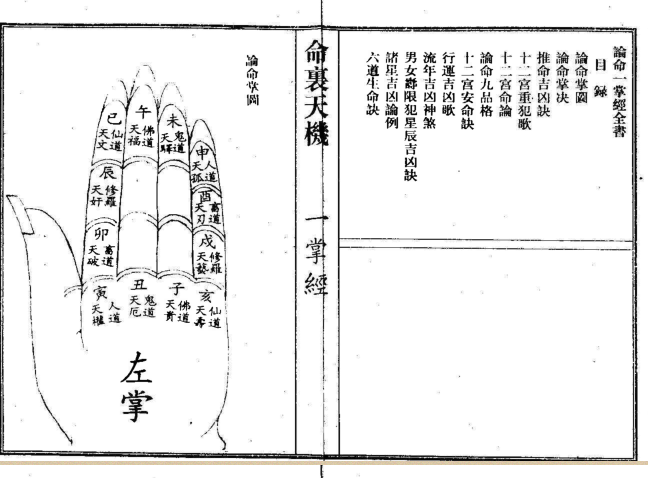 論命一掌經全書
目錄
論命掌圖
論命掌決
推命吉凶訣
十二宮重犯歌
十二宮命論
論命九品格
十二宮安命訣
行運吉凶歌
流年吉凶神煞
男女壽限犯星辰吉凶訣
諸星吉凶論例
六道生命訣
命裏天機
一掌經
論命掌圖
未
鬼道
天驛
午
佛道
天福
巳
仙道
天文
申
人道
天孤
辰
修羅
天奸
酉
畜道
天刃
卯
畜道
天破
戌
修羅
天藝
亥
仙道
天壽
子
佛道
天貴
丑
鬼道
天厄
寅
人道
天權
左掌